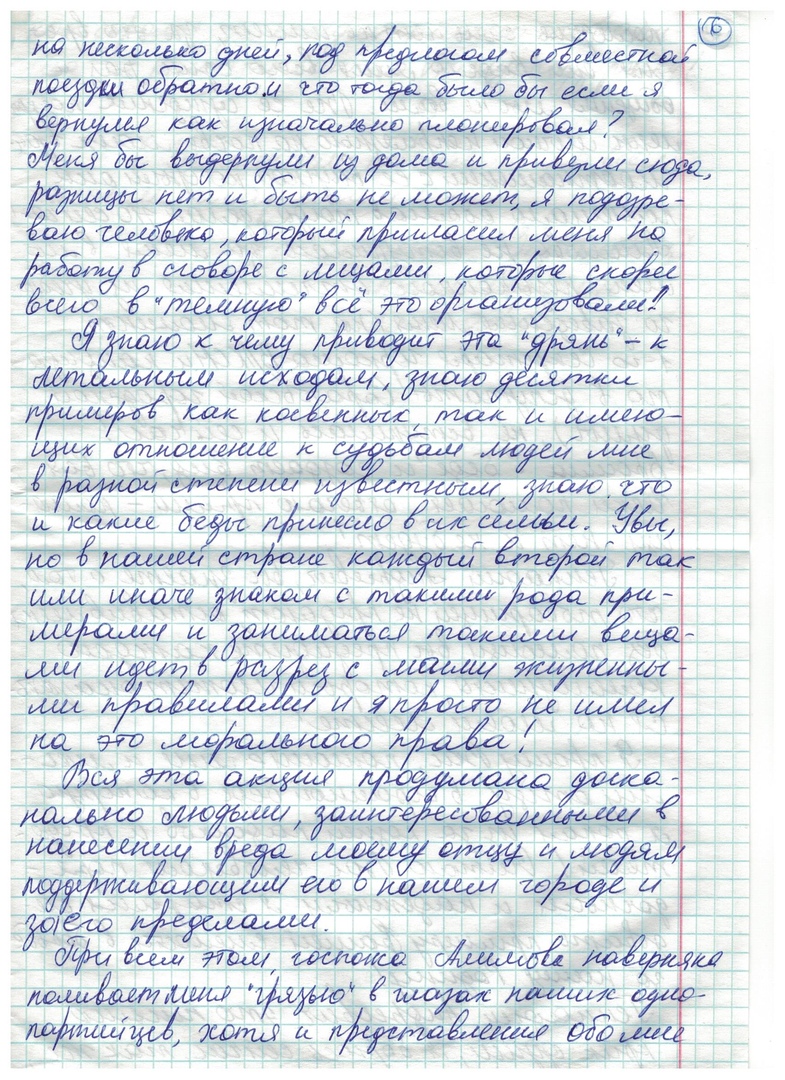 6
на несколько дней, под предлогом совместной
поездки обратно.И что тогда было бы если я
вернулся как изначально планировал?
Меня бы выдернули из дома и привезли сюда,
разницы нет и быть не может, я подозре-
ваю человека, который пригласил меня на
работу в сговоре с лицами, которые скорей
всего в "темную" всё это организовали!!
Я знаю к чему приводит эта "дрянь" - к
летальным исходам, знаю десятки
примеров как косвенных, так и имею-
щих отношение к судьбам людей мне
в разной степени известным, знаю что
и какие беды принесло в их семьи. Увы,
но в нашей стране каждый второй так
или иначе знаком с такими рода при-
мерами и заниматься такими веща-
ми идет в разрез с моими жизненны-
ми правилами и я просто не имел
на это морального права!
Вся эта акция продумана доска-
нально людьми, заинтересованными в
нанесении вреда моему отцу и людям
поддерживающим его в нашем городе и
за его пределами.
При всем этом, госпожа Алимова наверняка
поливает меня "грязью" в глазах наших одно-
партийцев, хотя и представления обо мне